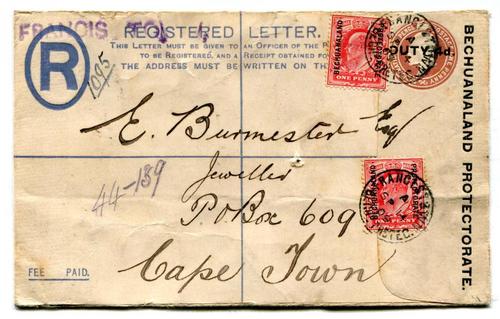 FRANCIS TOWN
REGISTERED LETTER.
THIS LETTER MUST BE GIVEN TO AN OFFICER OF THE
TO BE REGISTERED, AND A RECEIPT OBTAINED FOR
THE ADDRESS MUST BE WRITTEN ON THE
R
1095
BECHUANALAND PROTECTORATE
ONE PENNY
DUTY 4d.
BECHUANALAND PROTECTORATE.
E. Burmester Esq
Jeweller
P.O Box 609
Cape Town
44-189
BECHUANALAND PROTECTORATE
FEE PAID.